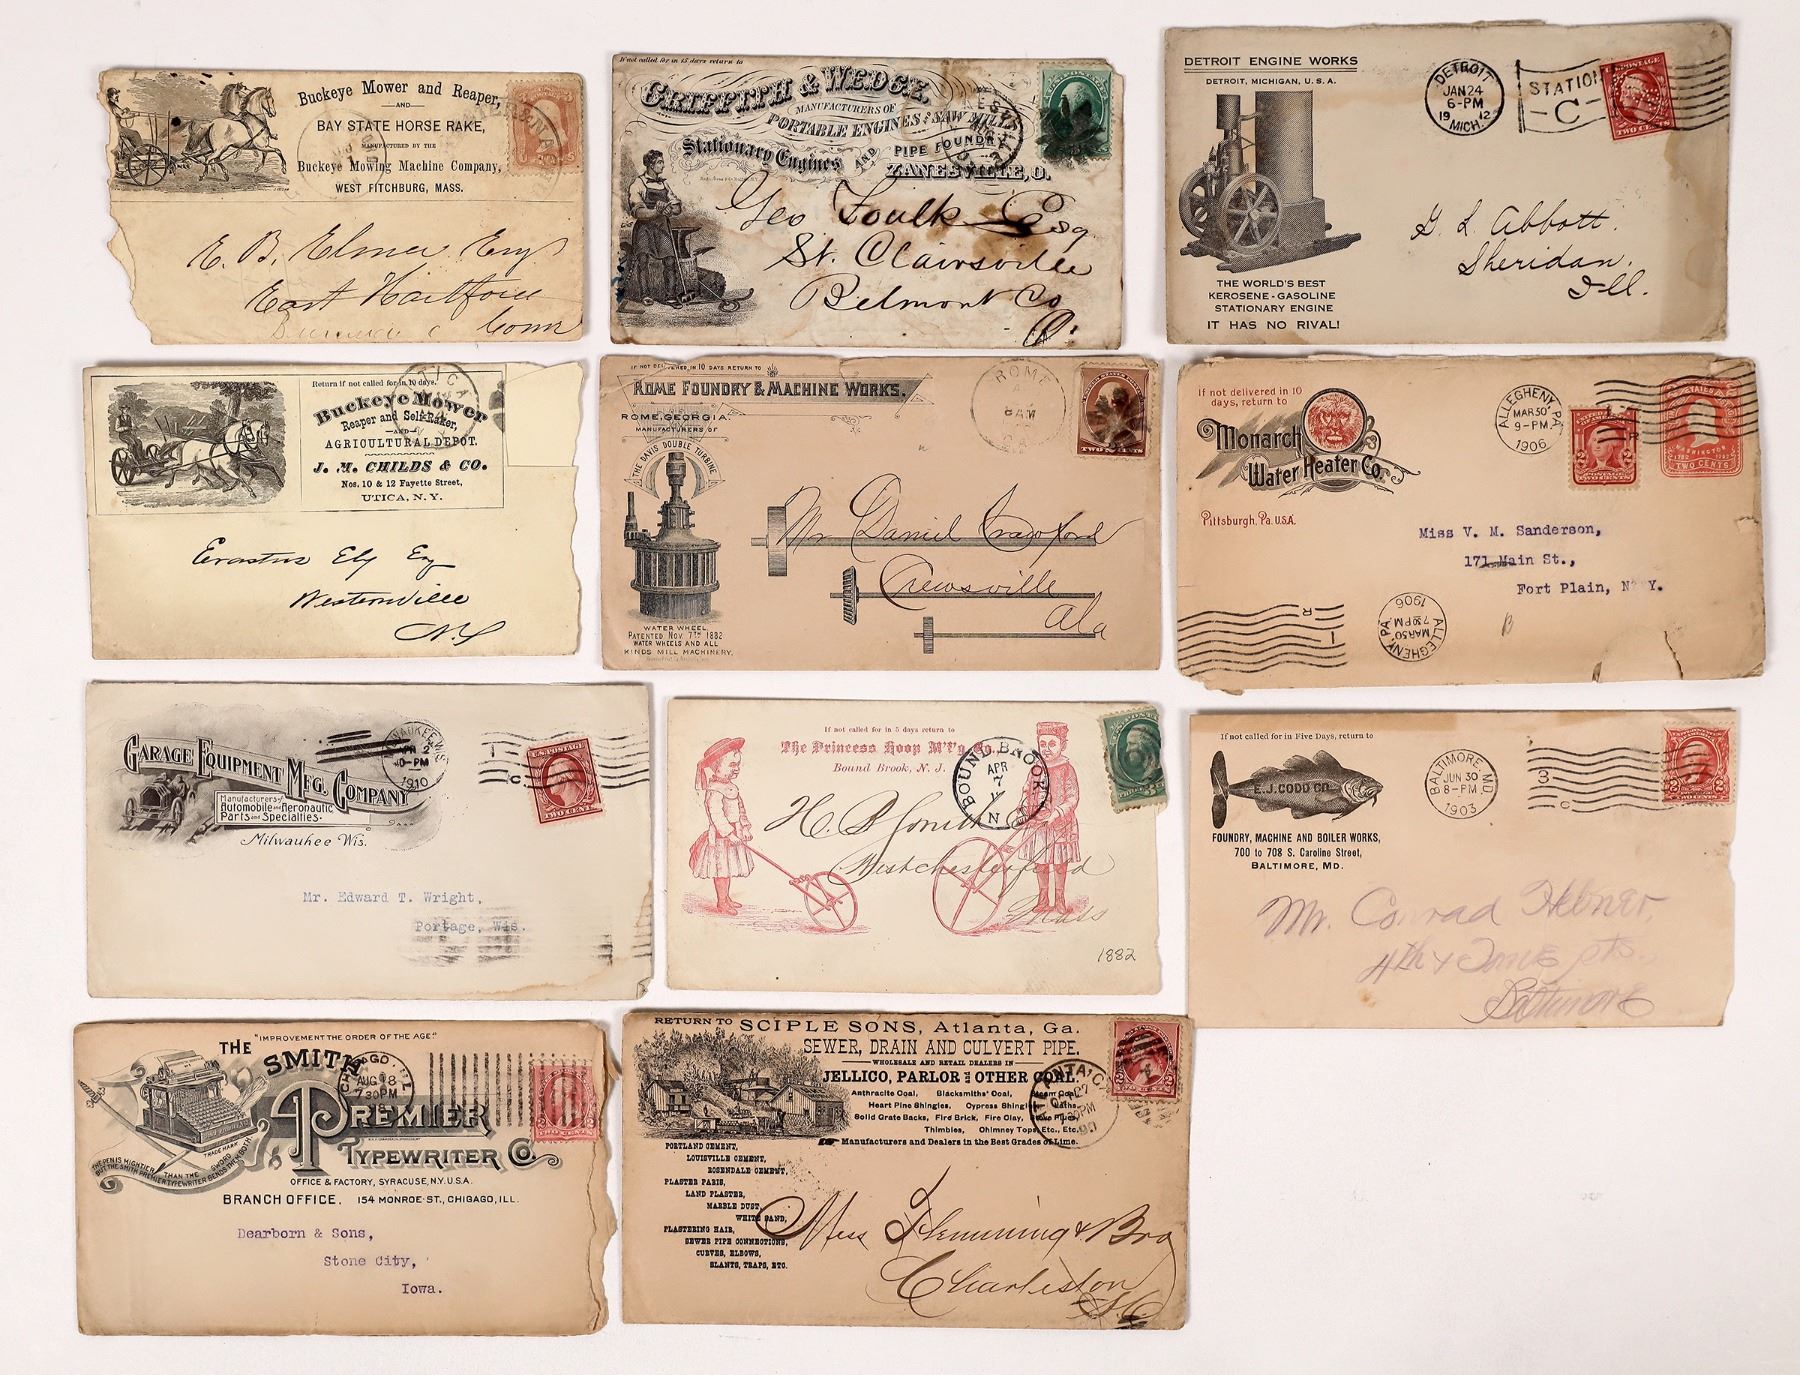 Buckeye Mower and Reaper,
AND
BAY STATE HORSE RAKE,
MANUFACTURED BY THE
Buckeye Mowing Machine Company,
WEST FITCHBURG, MASS.
E. B. Elmer Esq
East Hartford
Conn
If not called for in 15 days return to
GRIFFITH & WEDGE,
MANUFACTURERS OF
PORTABLE ENGINES AND SAW MILLS
Stationary Engines AND PIPE FOUNDRY
ZANESVILLE, O.
Geo Foulk Esq
St. Clairsville
Belmont Co
O.
DETROIT ENGINE WORKS
DETROIT, MICHIGAN, U.S.A.
THE WORLD'S BEST
KEROSENE-GASOLINE
STATIONARY ENGINE
IT HAS NO RIVAL!
DETROIT
JAN 24
6-PM
19 12
MICH.
STATION
-C-
U.S. POSTAGE
TWO CENTS
G. L. Abbott.
Sheridan.
Ill.
Return if not called for in 10 days.
Buckeye Mower
Reaper and Self-Raker,
AND
AGRICULTURAL DEPOT.
J. M. CHILDS & CO.
Nos. 10 & 12 Fayette Street,
UTICA, N.Y.
UTICA
Erastus Ely Esq
Westernville
N.Y
IF NOT DELIVERED IN 10 DAYS RETURN TO
ROME FOUNDRY & MACHINE WORKS.
ROME, GEORGIA.
MANUFACTURERS OF
THE DAVIS DOUBLE TURBINE
WATER WHEEL
PATENTED NOV. 7TH 1882
WATER WHEELS AND ALL
KINDS MILL MACHINERY.
ROME
8 AM
GA.
TWO CENTS
Mr Daniel Crawford
Crewsville
Ala
If not delivered in 10
days, return to
Monarch
Water Heater Co.
Pittsburgh, Pa. U.S.A.
ALLEGHENY, PA.
MAR 30
9-PM
1906
TWO CENTS
Miss V. M. Sanderson,
171 Main St.,
Fort Plain, N. Y.
ALLEGHENY, PA
MAR 30
7 30 PM
1906
B
GARAGE EQUIPMENT MFG. COMPANY
Manufacturers of
Automobile and Aeronautic
Parts and Specialties.
Milwaukee Wis.
MILWAUKEE, WIS.
1910
U.S. POSTAGE
TWO CENTS
Mr. Edward T. Wright,
Portage, Wis.
If not called for in 5 days return to
The Princess Hoop M'f'g Co.,
Bound Brook, N. J.
BOUND BROOK
APR
7
N J
Westchesterfield
Mass
1882
If not called for in Five Days, return to
E. J. CODD CO.
FOUNDRY, MACHINE AND BOILER WORKS,
700 to 708 S. Caroline Street,
BALTIMORE, MD.
BALTIMORE, MD.
JUN 30
8-PM
1903
3
C
Mr. Conrad Hebner,
Baltimore
"IMPROVEMENT THE ORDER OF THE AGE."
THE
SMITH
PREMIER
TYPEWRITER CO.
THE PEN IS MIGHTIER THAN THE SWORD
BUT THE SMITH PREMIER TYPEWRITER BENDS THEM BOTH
TRADE MARK
OFFICE & FACTORY, SYRACUSE, N.Y. U.S.A.
BRANCH OFFICE. 154 MONROE ST., CHICAGO, ILL.
CHICAGO, ILL.
AUG 18
7 30 PM
Dearborn & Sons,
Stone City,
Iowa.
RETURN TO SCIPLE SONS, Atlanta, Ga.
SEWER, DRAIN AND CULVERT PIPE.
WHOLESALE AND RETAIL DEALERS IN
JELLICO, PARLOR AND OTHER COAL.
Anthracite Coal, Blacksmiths' Coal, Steam Coal,
Heart Pine Shingles, Cypress Shingles, Laths,
Solid Grate Backs, Fire Brick, Fire Clay, Stove Flues,
Thimbles, Chimney Tops, Etc., Etc.
Manufacturers and Dealers in the Best Grades of Lime.
PORTLAND CEMENT,
LOUISVILLE CEMENT,
ROSENDALE CEMENT,
PLASTER PARIS,
LAND PLASTER,
MARBLE DUST,
WHITE SAND,
PLASTERING HAIR,
SEWER PIPE CONNECTIONS,
CURVES, ELBOWS,
SLANTS, TRAPS, ETC.
ATLANTA, GA.
7 30 PM
90
Mess Flemming & Bro
Charleston
S.C.